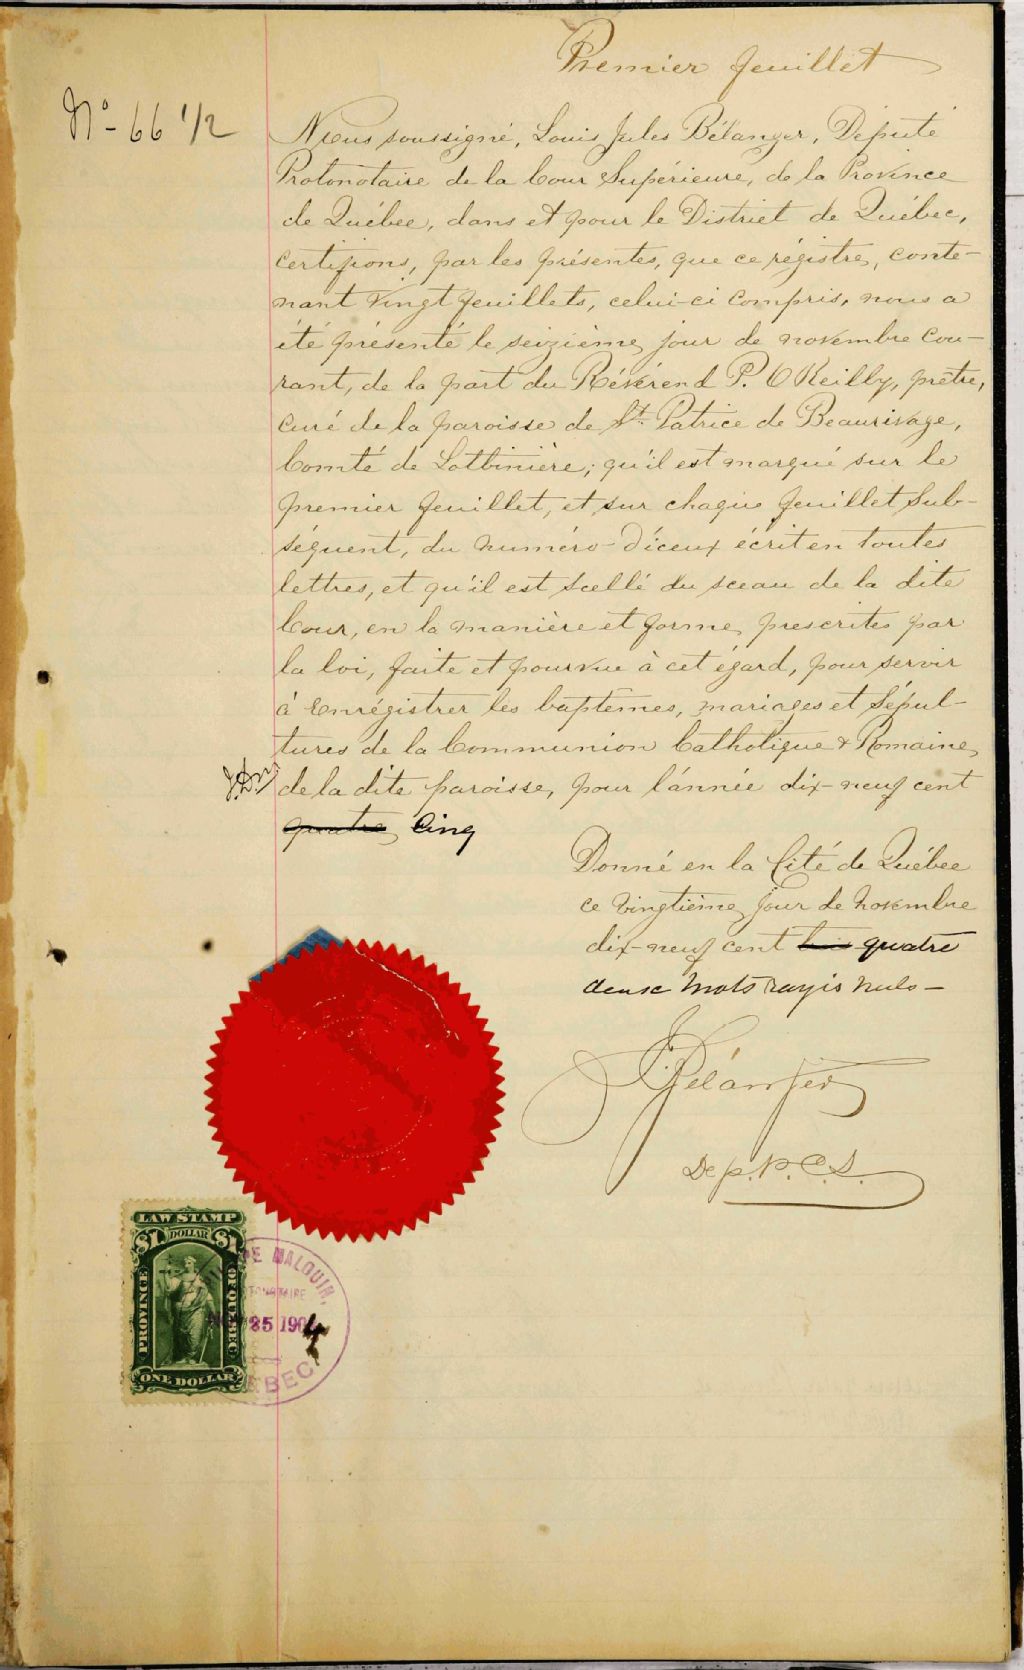 Premier feuillet
No- 66 1/2
Nous soussigné, Louis Jules Bélanger, Député
Protonotaire de la Cour Supérieure, de la Province
de Québec, dans et pour le District de Québec,
certifions, par les présentes, que ce régistre, conte-
nant vingt feuillets, celui-ci compris, nous a
été présenté le seizième jour de novembre cou-
rant, de la part du Révérend P. O'Reilly, prêtre,
curé de la paroisse de St. Patrice de Beaurivage,
Comté de Lotbinière; qu'il est marqué sur le
premier feuillet, et sur chaque feuillet sub-
séquent, du numéro d'iceux écrit en toutes
lettres, et qu'il est scellé du sceau de la dite
Cour, en la manière et forme prescrites par
la loi, faite et pourvue à cet égard, pour servir
à enrégistrer les baptêmes, mariages et sépul-
tures de la Communion Catholique & Romaine
de la dite paroisse, pour l'année dix-neuf cent
quatre Cinq
Donné en la Cité de Québec
ce vingtième jour de novembre
dix-neuf cent quatre
deux mots rayés nuls-
Bélanger
Dep. P. C. S.
LAW STAMP
$1 DOLLAR $1
PROVINCE OF QUEBEC
ONE DOLLAR
MALOUIN,
25 1904